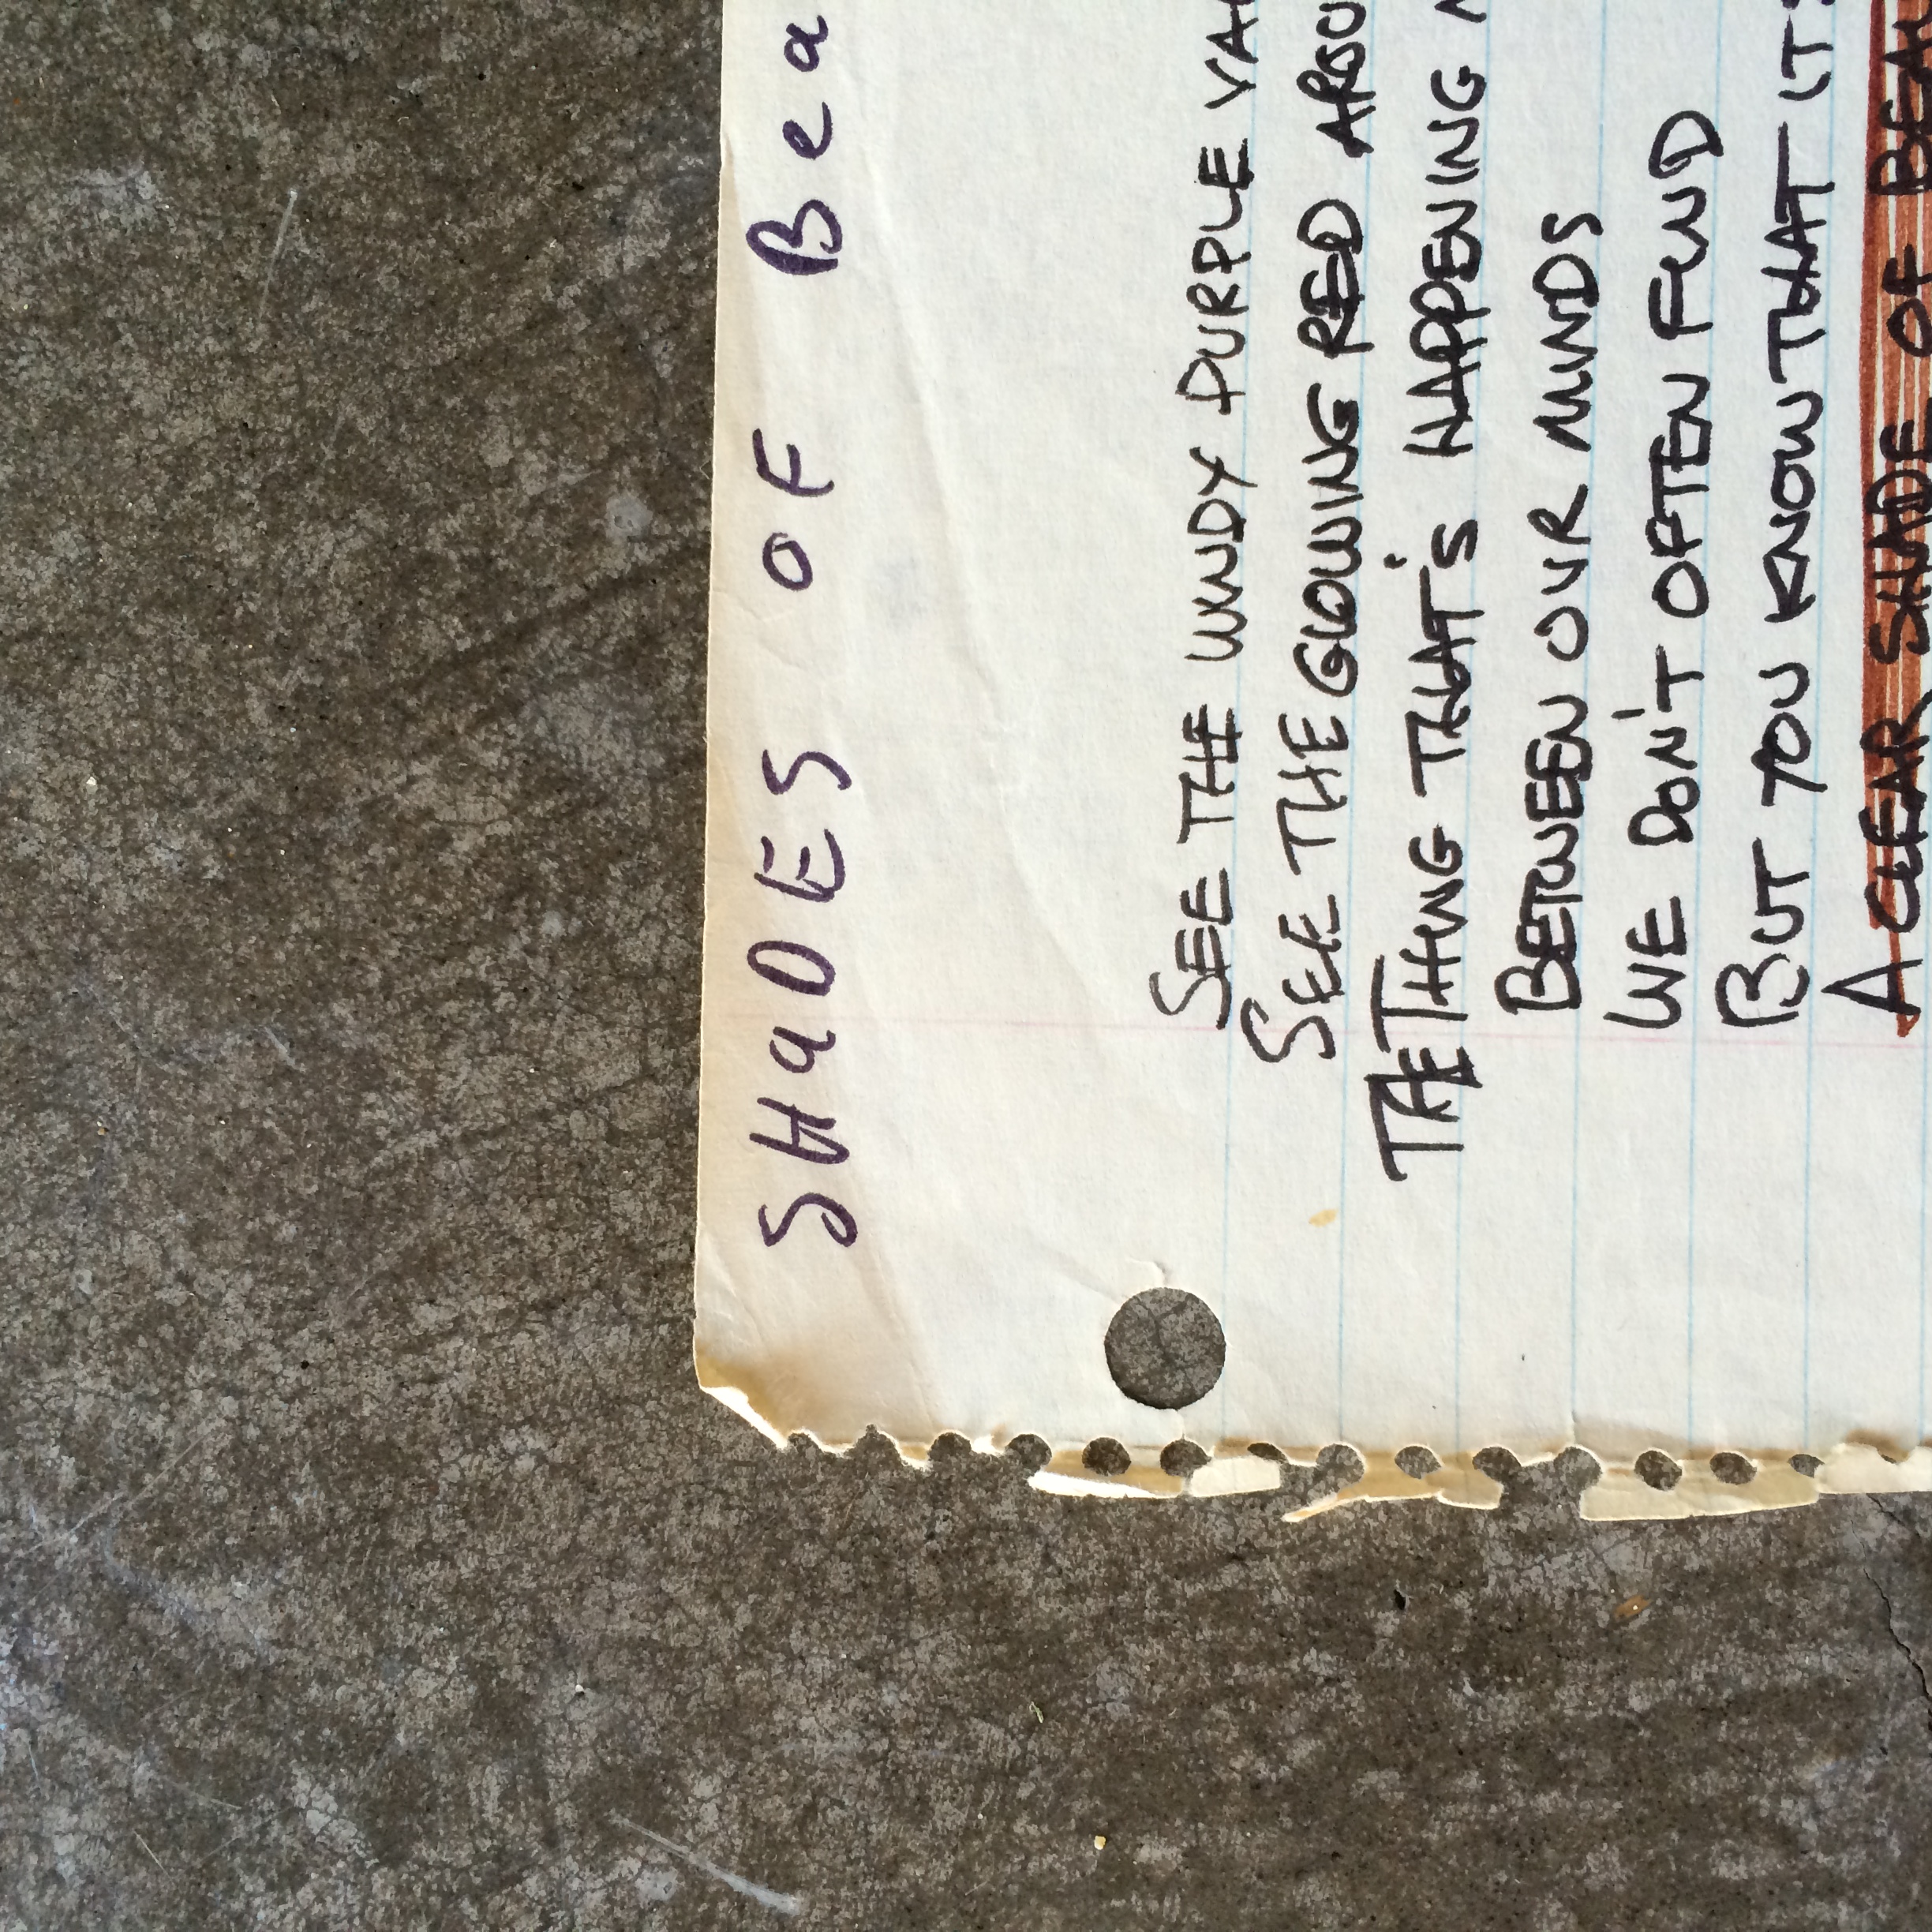 SHaDES OF Bea
SEE THE WINDY PURPLE
SEE THE GLOWING RED AROU
THE THING THAT'S HAPPENING
BETWEEN OUR MINDS
WE DON'T OFTEN FIND
BUT YOU KNOW THAT IT'S
A CLEAR SHADE OF BEAU